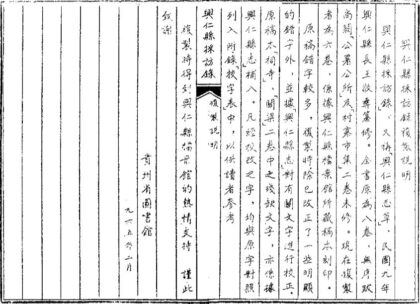 興仁縣採訪錄複製說明
興仁縣採訪錄、又稱興仁縣志草，民國九年
興仁縣長主敬彝纂修。全書原為八卷，無序跋
尚闕「公署公所」及「村寨市集」二卷未修。現在複製
者為六卷，係據興仁縣檔案館所藏稿本刻印。
原稿錯字較多，複製時除已改正了一些明顯
的錯字外，並據興仁縣志對有關文字進行校正。
原稿本「祠寺」、「關梁」二卷中之殘缺文字，亦係據
興仁縣志補入。凡經校改之字，均與原字對照
列入附錄校字卷中，以供讀者參考
興仁縣採訪錄
複製說明
複製時得到興仁縣檔案館的熱情支持，謹此
致謝
貴州省圖書館
一九六五年二月